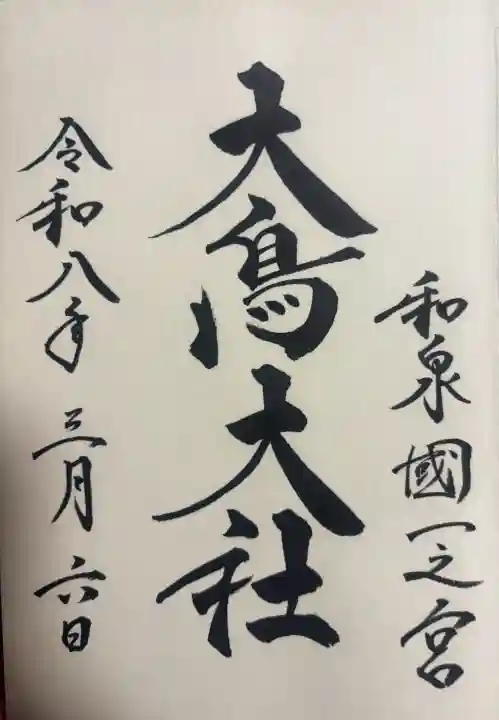 和泉國一之宮
大鳥大社
令和八年三月六日